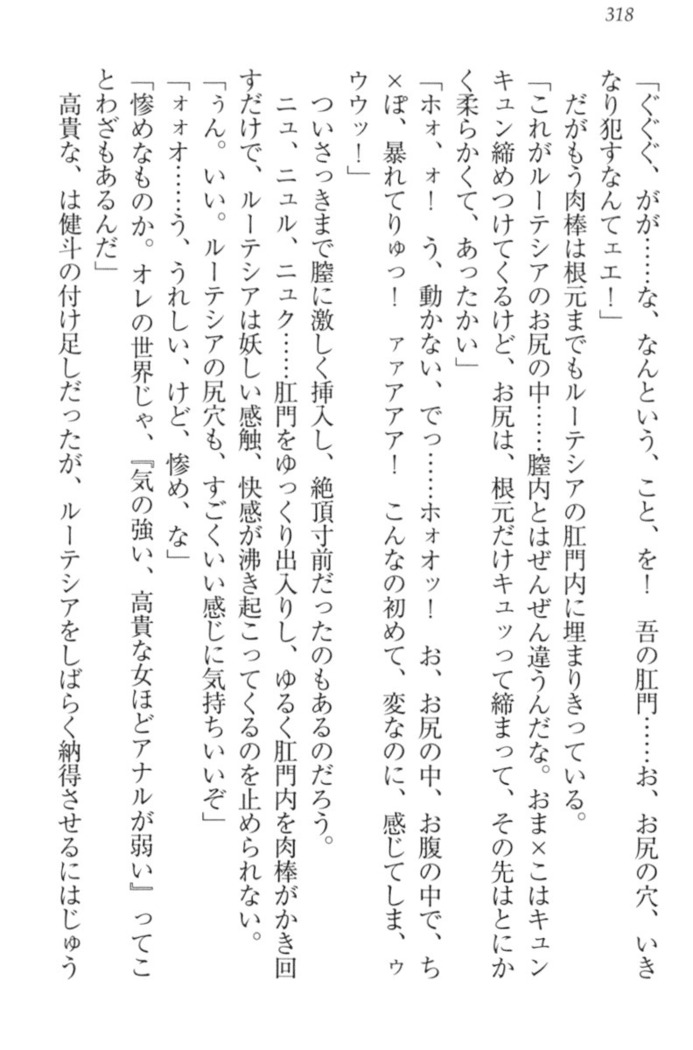 318
「ぐぐぐ、がが……な、なんという、こと、を！　吾の肛門……お、お尻の穴、いき
なり犯すなんてェエ！」
だがもう肉棒は根元までもルーテシアの肛門内に埋まりきっている。
「これがルーテシアのお尻の中……膣内とはぜんぜん違うんだな。おま×こはキュン
キュン締めつけてくるけど、お尻は、根元だけキュッって締まって、その先はとにか
く柔らかくて、あったかい」
「ホォ、ォ！　う、動かない、でっ……ホォオッ！　お、お尻の中、お腹の中で、ち
×ぽ、暴れてりゅっ！　ァァアアア！　こんなの初めて、変なのに、感じてしま、ゥ
ウウッ！」
ついさっきまで膣に激しく挿入し、絶頂寸前だったのもあるのだろう。
ニュ、ニュル、ニュク……肛門をゆっくり出入りし、ゆるく肛門内を肉棒がかき回
すだけで、ルーテシアは妖しい感触、快感が沸き起こってくるのを止められない。
「ぅん。いい。ルーテシアの尻穴も、すごくいい感じに気持ちいいぞ」
「ォォオ……う、うれしい、けど、惨め、な」
「惨めなものか。オレの世界じゃ、『気の強い、高貴な女ほどアナルが弱い』ってこ
とわざもあるんだ」
高貴な、は健斗の付け足しだったが、ルーテシアをしばらく納得させるにはじゅう